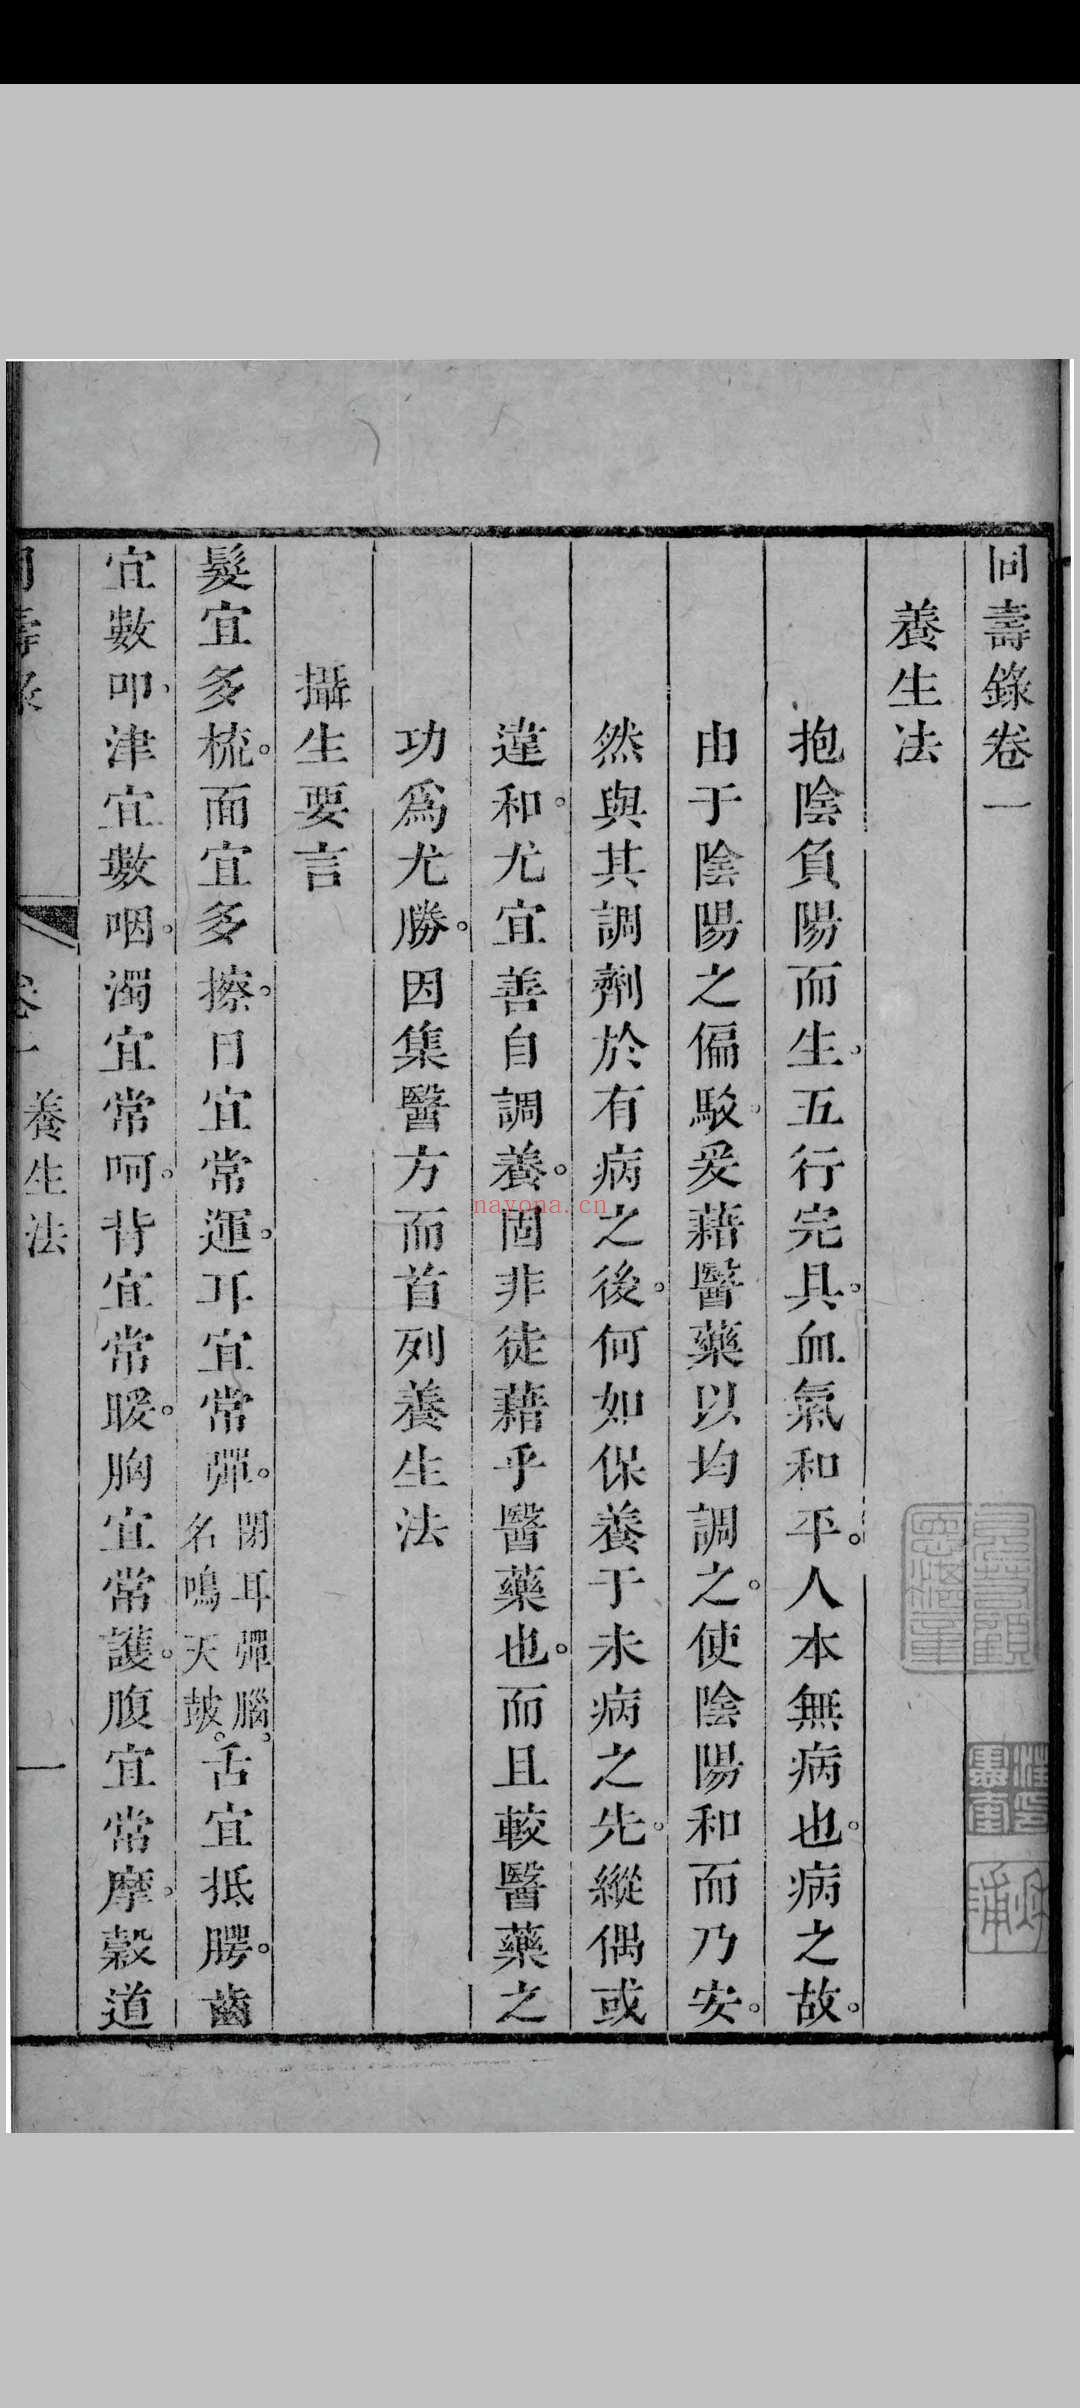 同壽錄卷一
養生法
抱陰負陽而生五行完具。血氣和平。人本無病也。病之故。
由于陰陽之偏駁。爰藉醫藥以均調之。使陰陽和而乃安。
然與其調劑於有病之後。何如保養于未病之先。縱偶或
違和。尤宜善自調養。固非徒藉乎醫藥也。而且較醫藥之
功為尤勝。因集醫方而首列養生法
攝生要言
髮宜多梳。面宜多擦。目宜常運。耳宜常彈。閉耳彈腦。名鳴天鼓。舌宜抵腭。齒
宜數叩。津宜數咽。濁宜常呵。背宜常暖。胸宜常護。腹宜常摩。穀道
卷一 養生法 一
nayona.cn